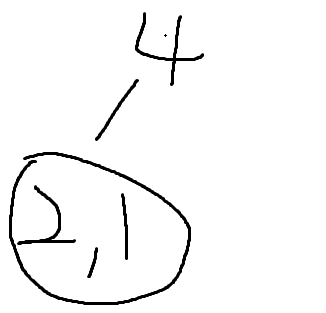 4
2,1